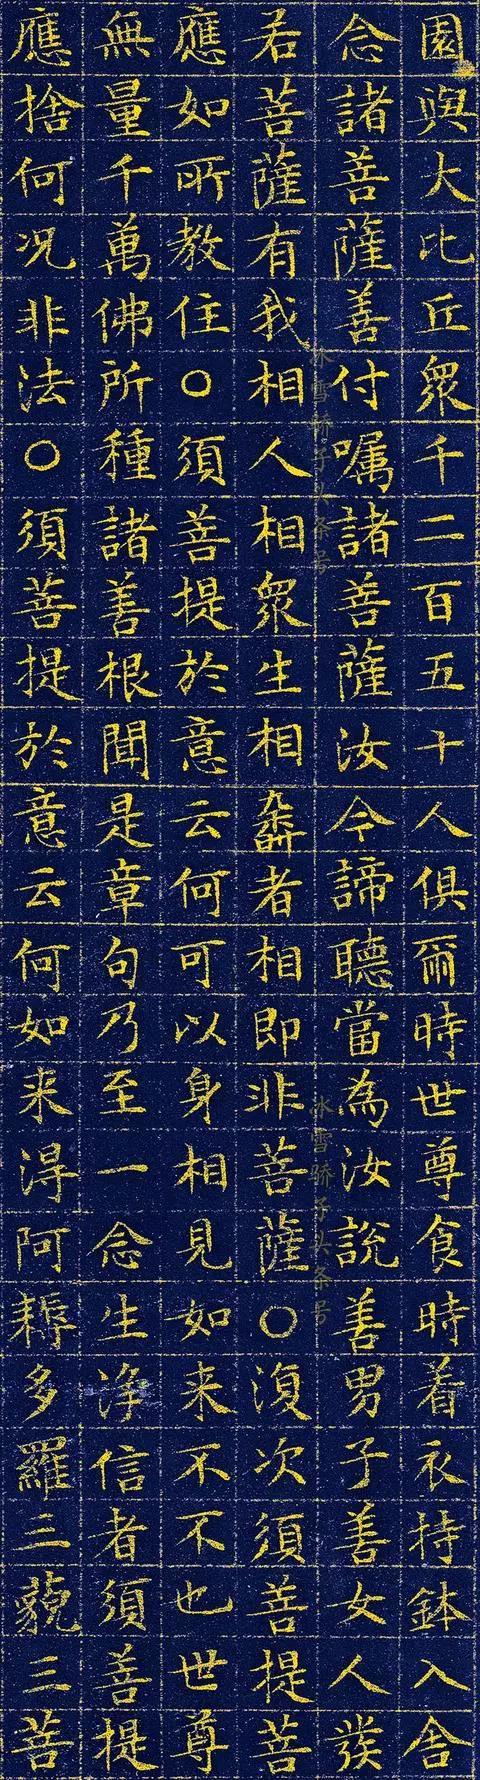 園與大比丘眾千二百五十人俱爾時世尊食時着衣持鉢入舍
念諸善薩善付嘱諸善薩汝今諦聽當為汝說善男子善女人發
若菩薩有我相人相眾生相壽者相即非菩薩○復次須菩提菩
應如所教住○須菩提於意云何可以身相見如来不不也世尊
無量千萬佛所種諸善根聞是章句乃至一念生淨信者須菩提
應捨何况非法○須菩提於意云何如来淂阿耨多羅三藐三菩
冰雪骄子头条号
冰雪骄子头条号